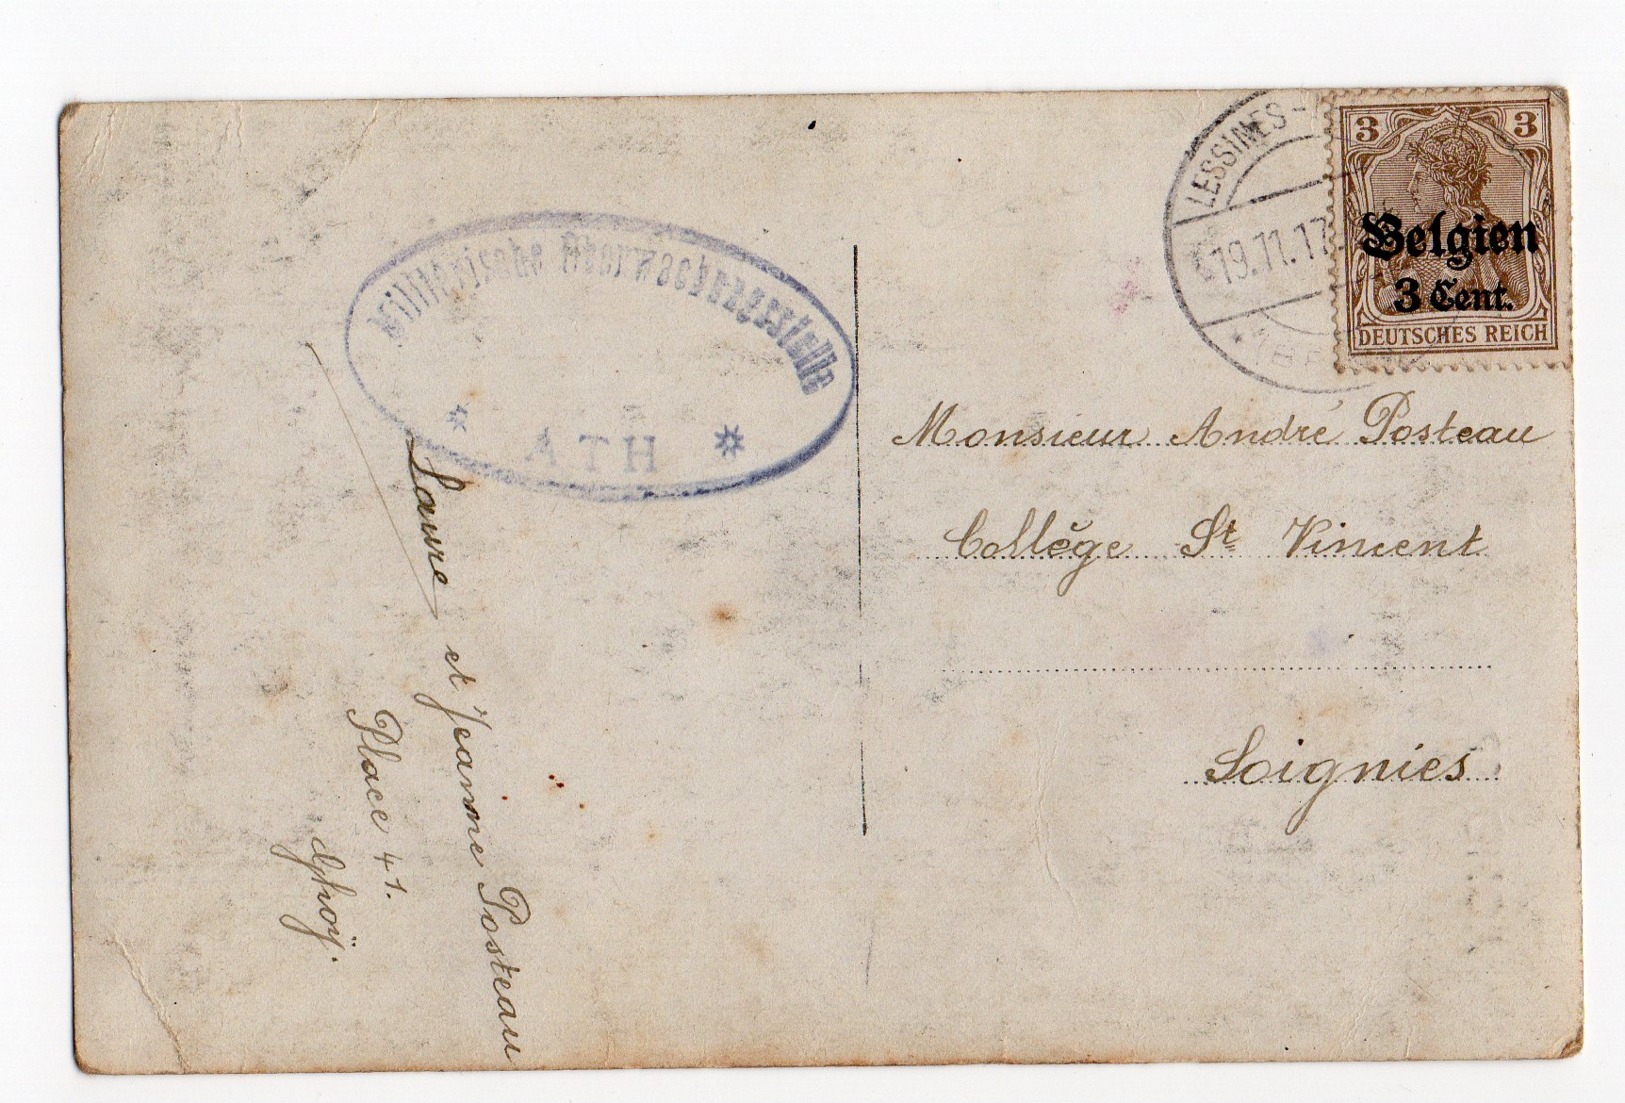 LESSINES -
19.11.17
3 3
Belgien
3 Cent.
DEUTSCHES REICH
Militärische Überwachungsstelle
* ATH *
Monsieur André Posteau
Collège St Vincent
Soignies
et Jeanne Posteau
Place 41.
Ghoÿ.